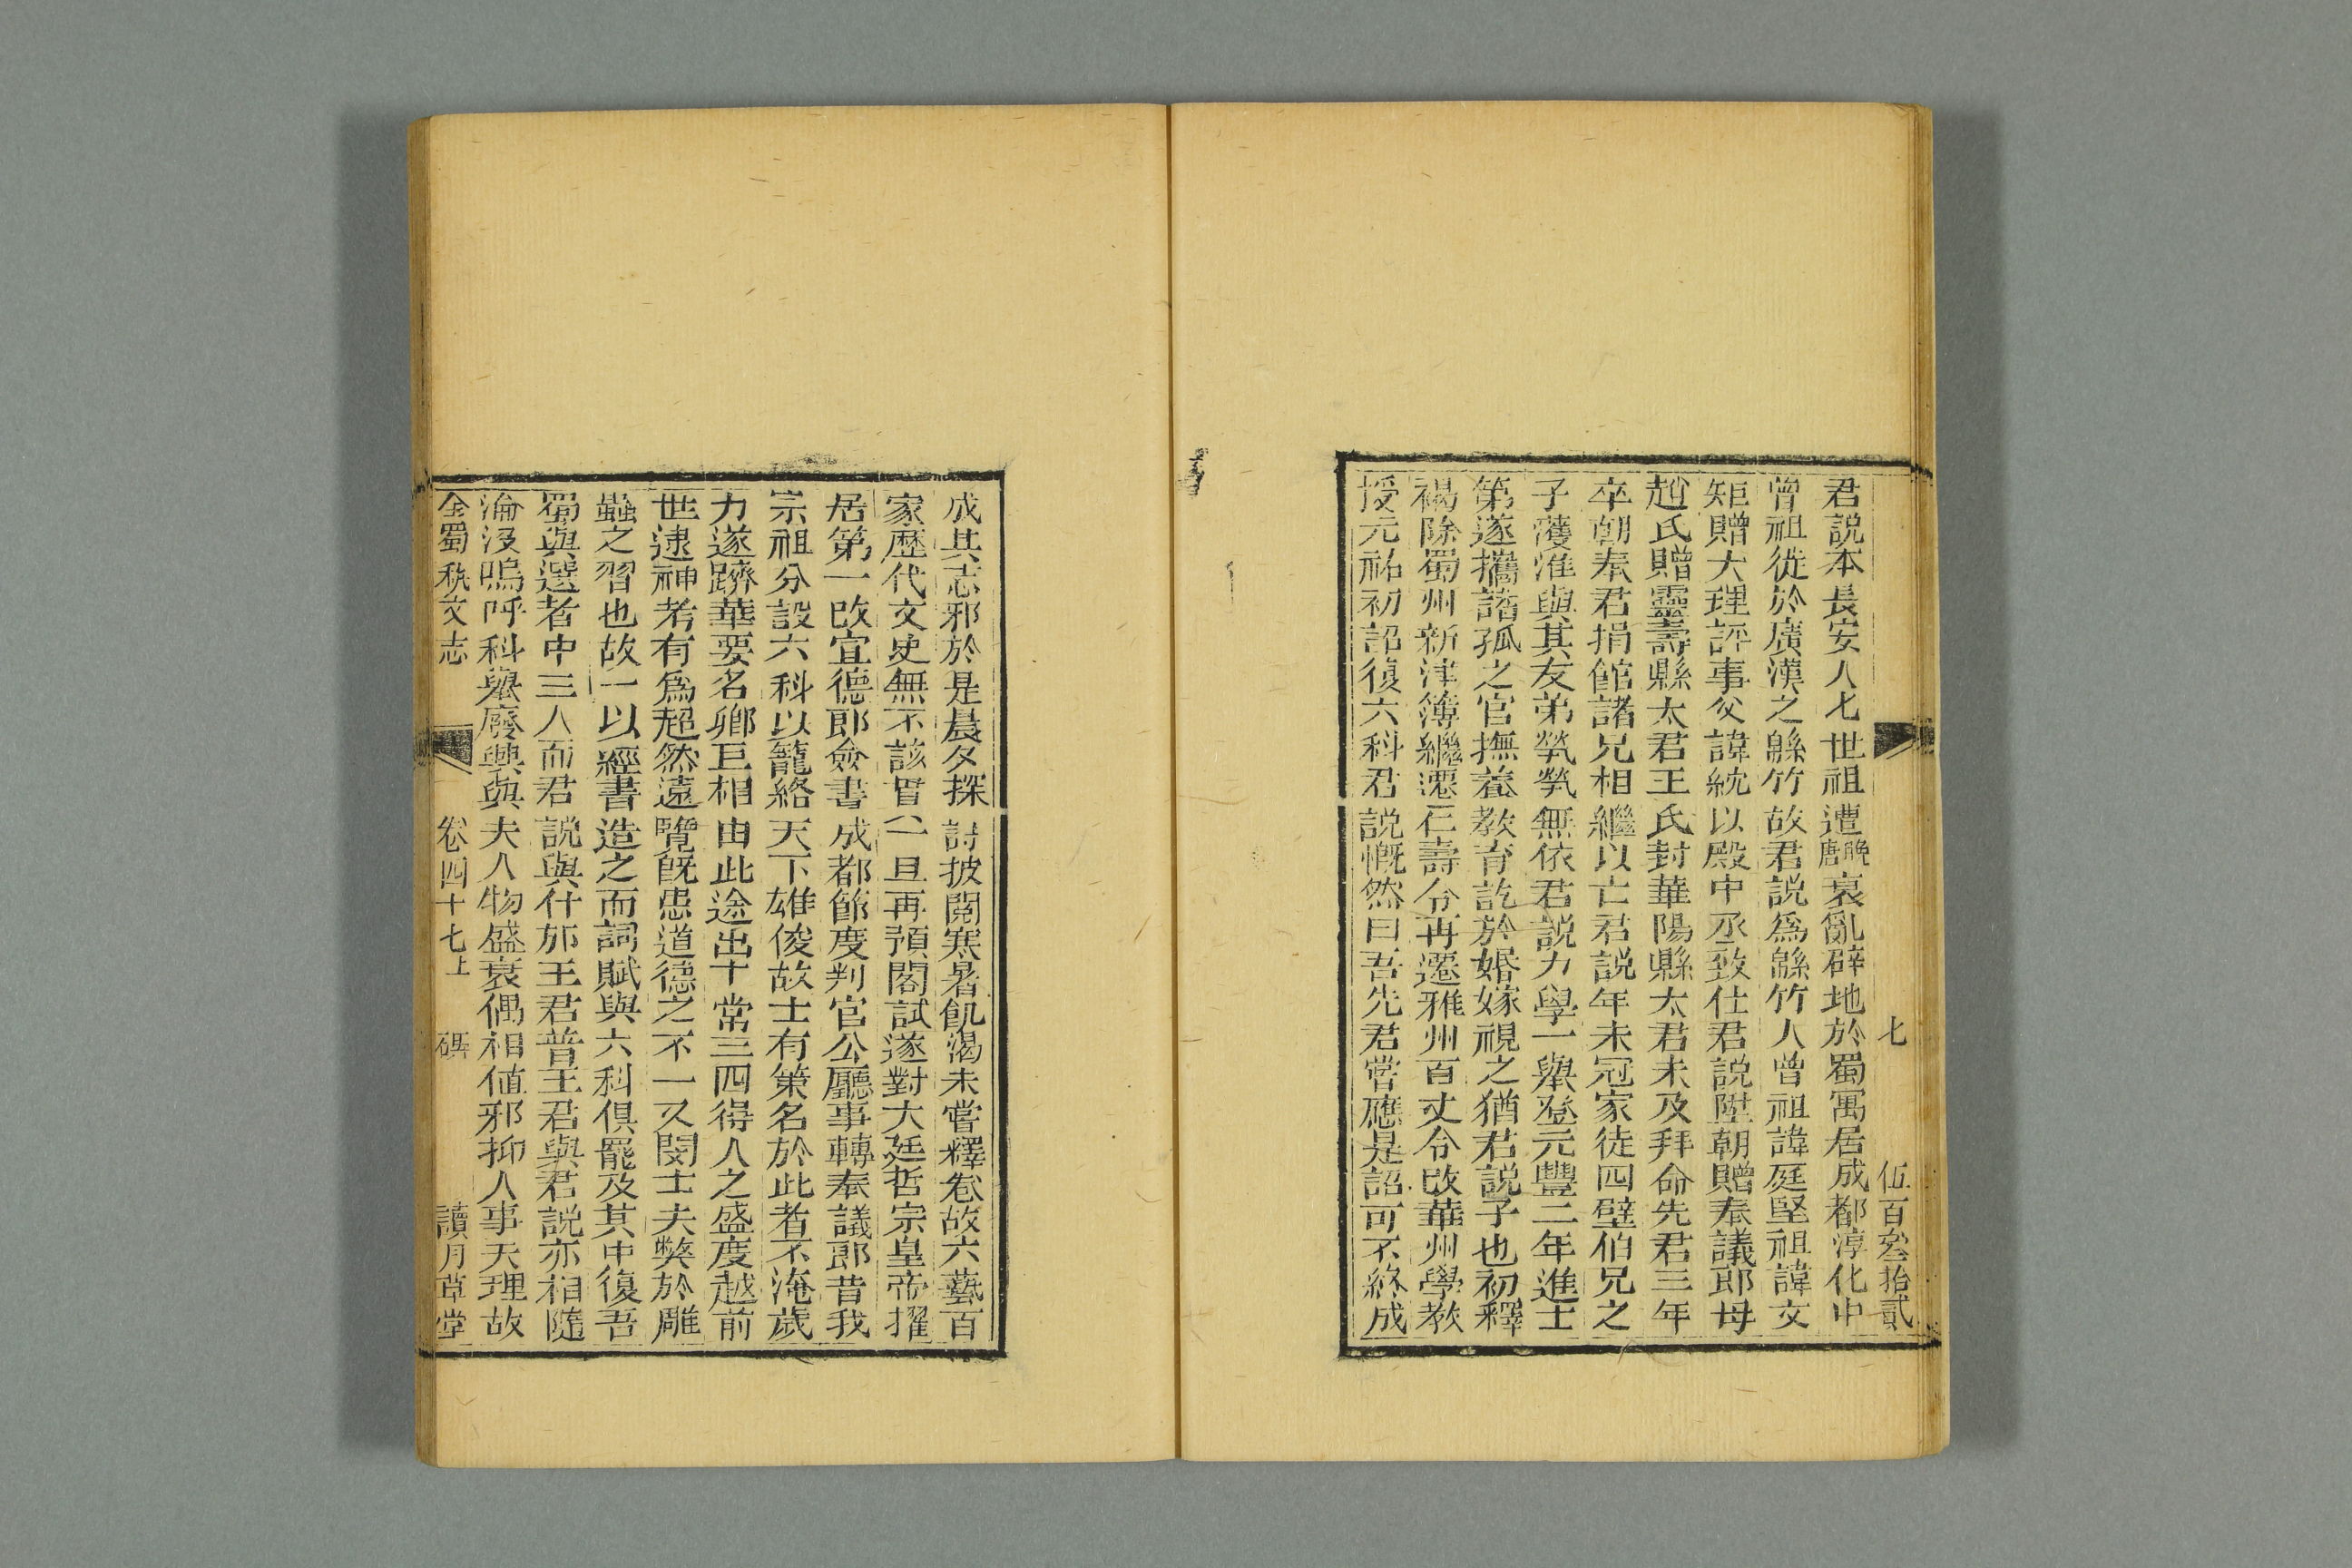 七 伍百叁拾貳
君說本長安人七世祖遭晚唐衰亂辟地於蜀寓居成都淳化中
曾祖徙於廣漢之緜竹故君說爲緜竹人曾祖諱庭堅祖諱文
矩贈大理評事父諱統以殿中丞致仕君說陞朝贈奉議郎母
趙氏贈靈壽縣太君王氏封華陽縣太君未及拜命先君三年
卒朝奉君捐館諸兄相繼以亡君說年未冠家徒四壁伯兄之
子蒦淮與其友弟煢煢無依君說力學一舉登元豐二年進士
第遂攜諸孤之官撫養教育訖於婚嫁視之猶君說子也初釋
褐除蜀州新津簿繼遷仁壽令再遷雅州百丈令改華州學教
授元祐初詔復六科君說慨然曰吾先君嘗應是詔可不終成
成其志邪於是晨夕探討披閱寒暑飢渴未嘗釋卷故六藝百
家歷代文史無不該貫一旦再預閣試遂對大廷哲宗皇帝擢
居第一改宣德郎僉書成都節度判官公廳事轉奉議郎昔我
宗祖分設六科以籠絡天下雄俊故士有策名於此者不淹歲
力遂躋華要名卿巨相由此途出十常三四得人之盛度越前
世逮神考有爲超然遠覽旣患道德之不一又閔士夫弊於雕
蟲之習也故一以經書造之而詞賦與六科俱罷及其中復吾
蜀與選者中三人而君說與什邡王君普王君與君說亦相隨
淪沒嗚呼科舉廢興與夫人物盛衰偶相值邪抑人事天理故
全蜀秇文志 卷四十七上 碑 讀月草堂